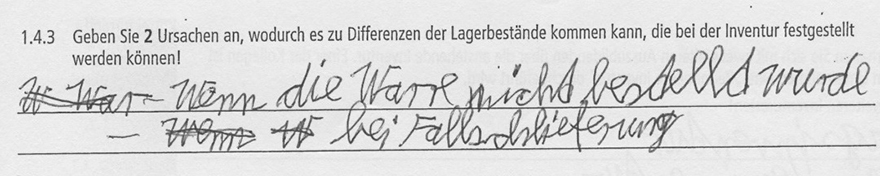 1.4.3 Geben Sie 2 Ursachen an, wodurch es zu Differenzen der Lagerbestände kommen kann, die bei der Inventur festgestellt
werden können!
- Wenn die Warre nicht besdelld wurde
- bei Fallschlieferung